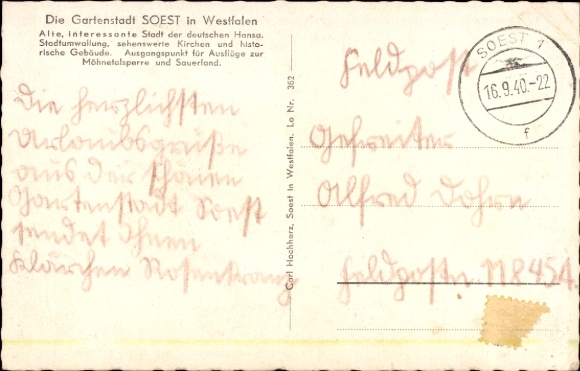 Die Gartenstadt SOEST in Westfalen
Alte, interessante Stadt der deutschen Hansa.
Stadtumwallung, sehenswerte Kirchen und histo-
rische Gebäude. Ausgangspunkt für Ausflüge zur
Möhnetalsperre und Sauerland.
Die herzlichsten
Urlaubsgrüße
aus der schönen
Gartenstadt Soest
sendet Ihnen
Klärchen Rosenkranz
Carl Hochherz, Soest in Westfalen, La Nr. 362
SOEST 1
16.9.40.-22
f
Feldpost
Gefreiter
Alfred Dohrn
Feldpostn. N 8454.